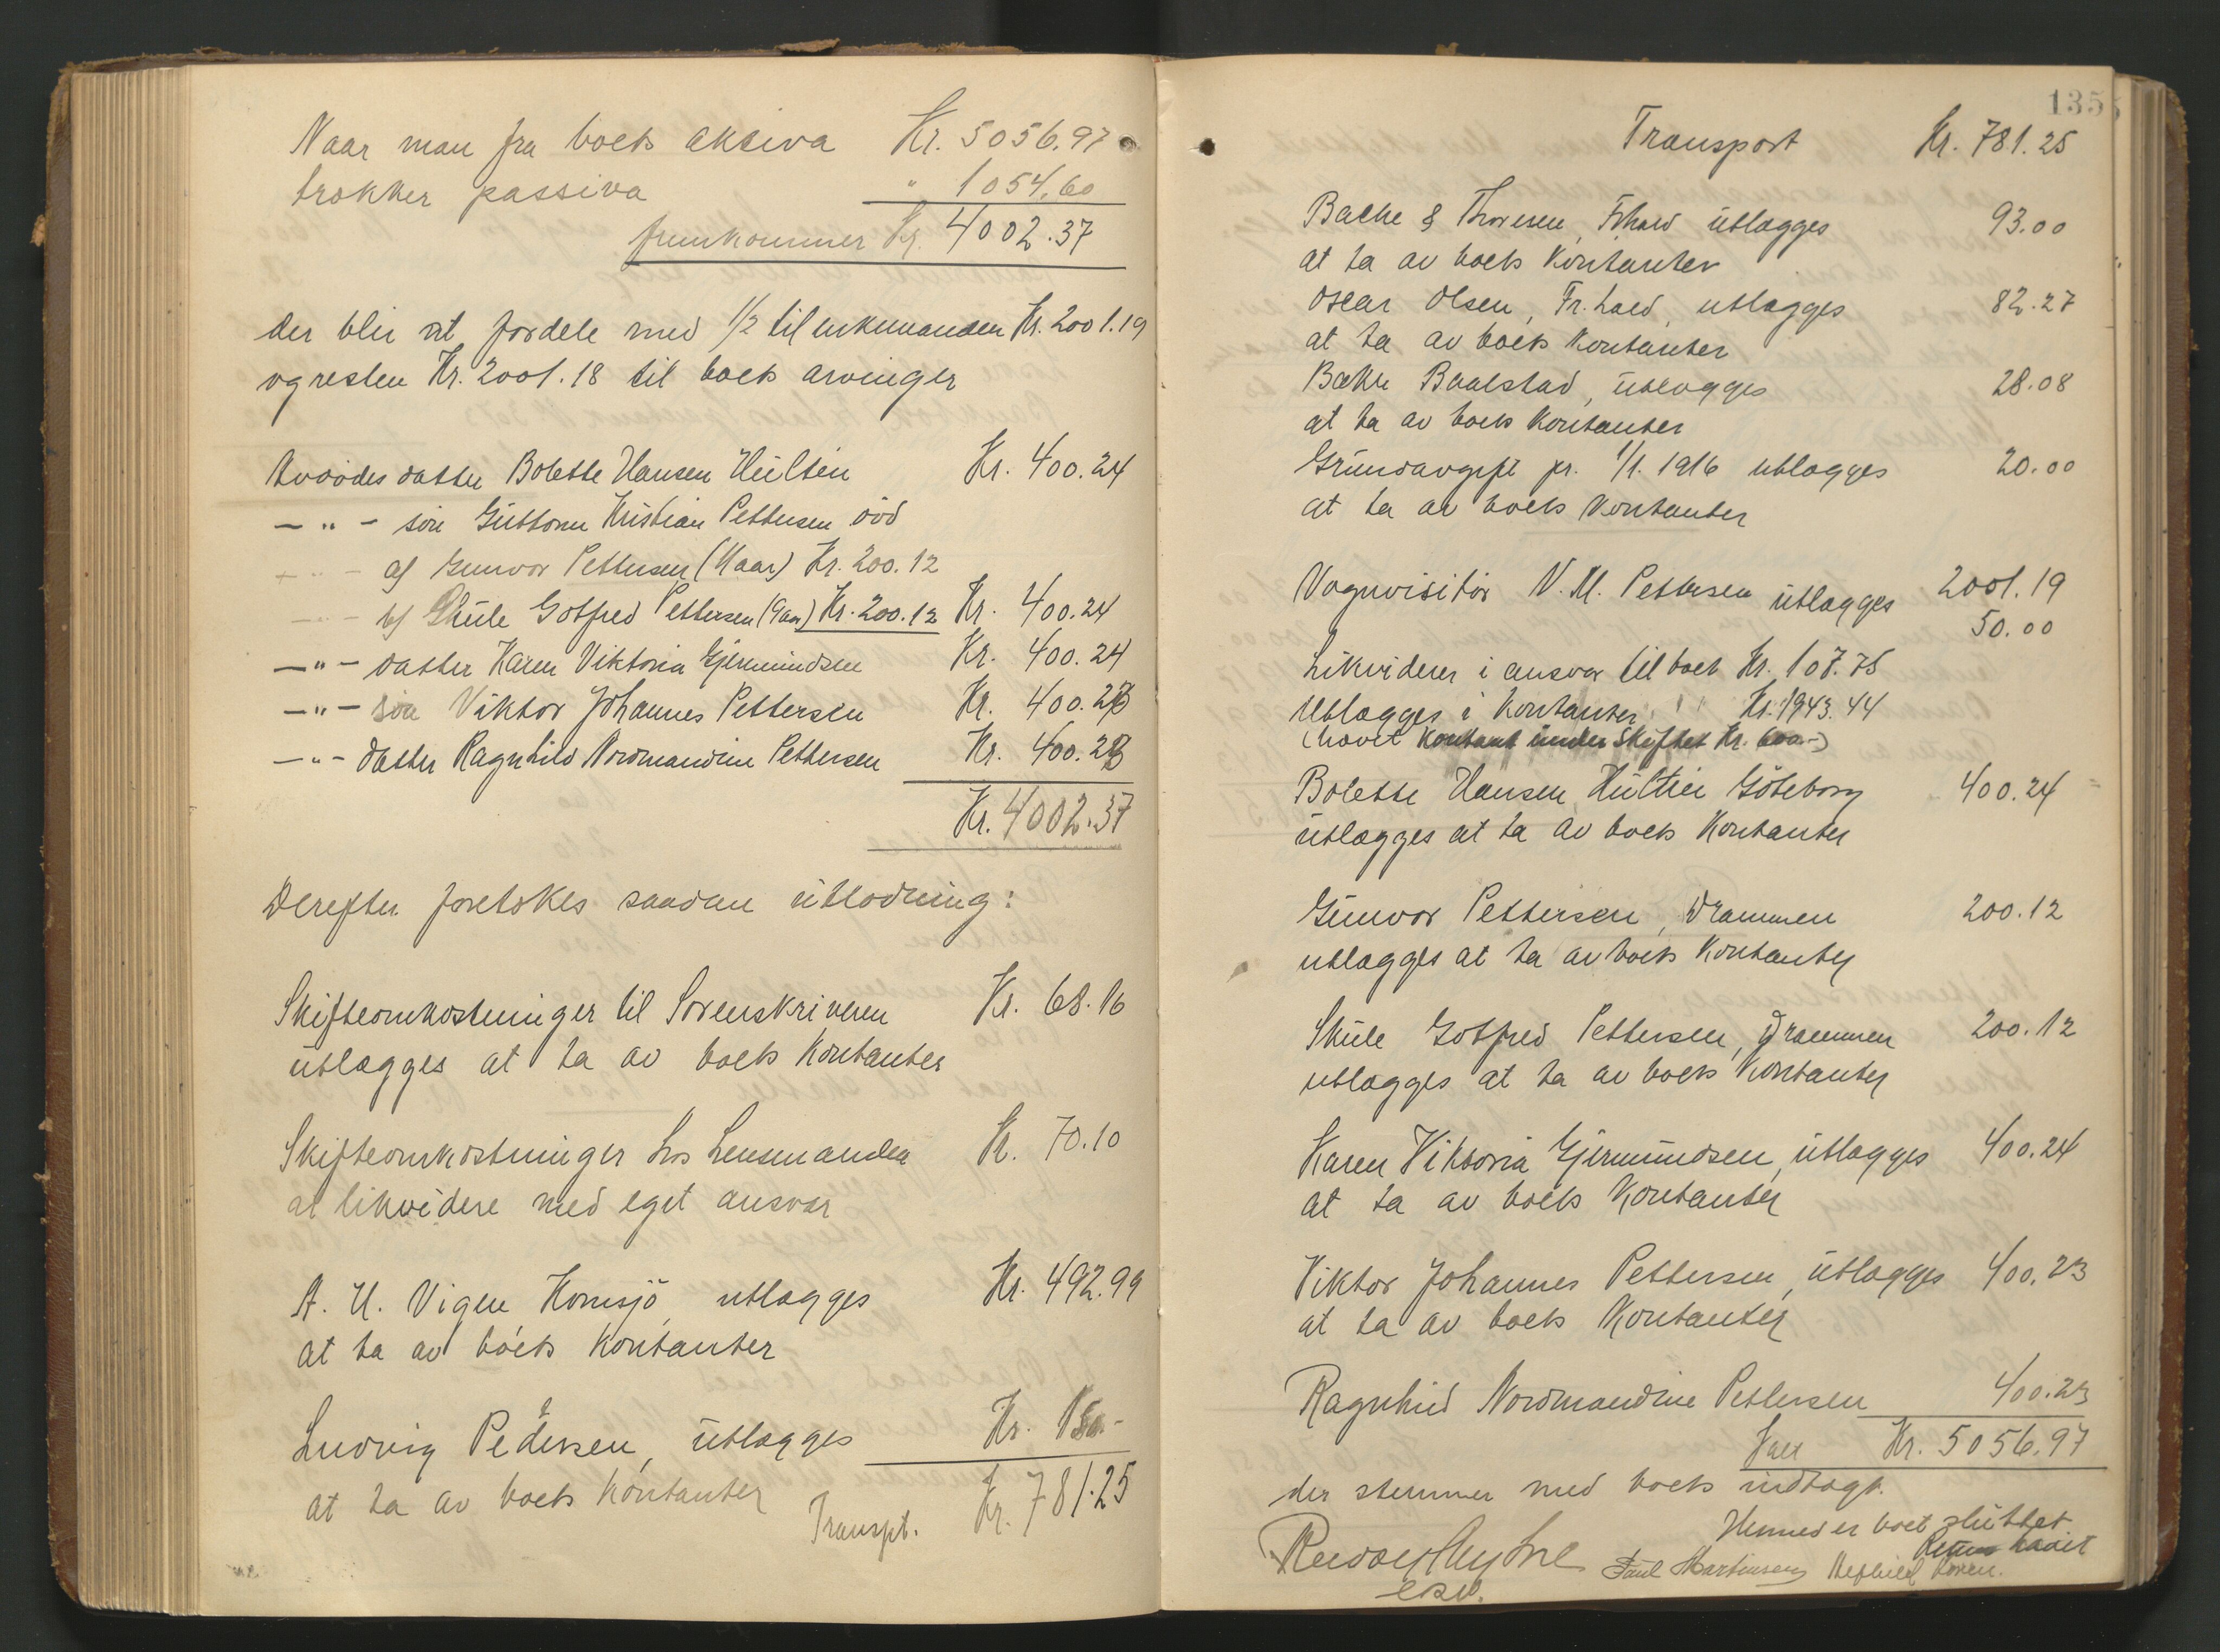 Naar man fra boets aktiva Kr. 5056.97
trækker passiva " 1054.60
fremkommer Kr. 4002.37
der blir at fordele med 1/2 til enkemanden Kr. 2001.19
og resten Kr. 2001.18 til boets arvinger
Avdødes datter Bolette Hansen Hultin Kr. 400.24
— " — søn Guttorm Kristian Pettersen død
— " — a/ Gunvor Pettersen ( aar) Kr. 200.12
— " — b/ Skule Gotfred Pettersen ( aar) Kr. 200.12 Kr. 400.24
— " — datter Karen Viktoria Gjermundsen Kr. 400.24
— " — søn Viktor Johannes Pettersen Kr. 400.23
— " — datter Ragnhild Nordmandine Pettersen Kr. 400.23
Kr. 4002.37
Derefter foretokes saadan utlodning:
Skifteomkostninger til Sorenskriveren Kr. 68.16
utlægges at ta av boets Kontanter
Skifteomkostninger hos Lensmanden Kr. 70.10
at likvidere med eget ansvar
A. H. Vigen, Kornsjø, utlægges Kr. 492.99
at ta av boets Kontanter
Ludvig Pedersen, utlægges Kr. 150.-
at ta av boets Kontanter
Transpt. Kr. 781.25
135
Transport Kr. 781.25
Bache & Thoresen, Frhald utlægges 93.00
at ta av boets Kontanter
Oscar Olsen, Fr.hald, utlægges 82.27
at ta av boets Kontanter
Baalstad, utlægges 28.08
at ta av boets Kontanter
Grundavgift pr. 1/1. 1916 utlægges 20.00
at ta av boets Kontanter
Vognvisitør N. M. Pettersen utlægges 2001.19
50.00
Likviderer i ansvar til boet Kr. 107.75
Utlægges i Kontanter Kr. 1943.44
(havet Kontant under Skiftet Kr. 600.-)
Bolette Hansen Hultin Göteborg 400.24
utlægges at ta av boets Kontanter
Gunvor Pettersen, Drammen 200.12
utlægges at ta av boets Kontanter
Skule Gotfred Pettersen, Drammen 200.12
utlægges at ta av boets Kontanter
Karen Viktoria Gjermundsen, utlægges 400.24
at ta av boets Kontanter
Viktor Johannes Pettersen, utlægges 400.23
at ta av boets Kontanter
Ragnhild Nordmandine Pettersen 400.23
Kr. 5056.97
der stemmer med boets indtægt.
Hermed er boet sluttet
Retten hævet
Paul Martinsen